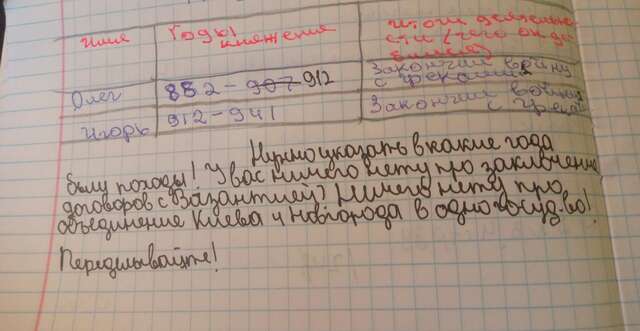 Имя Годы княжения Итоги деятельности (чего он добился)
Олег 882 - 907 912 Закончил войну с греками
Игорь 912 - 941 Закончил войну с
Нужно указать в какие года
были походы! У вас ничего нету про заключение
договоров с Византией? Ничего нету про
объединение Киева и Новгорода в одно госуд-во!
Переделывайте!